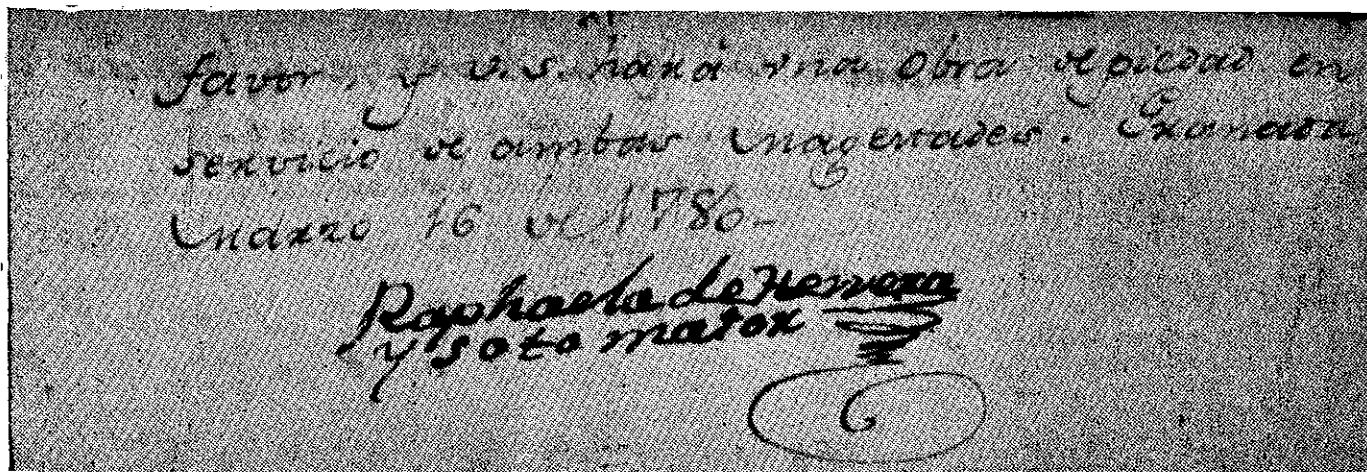 favor, y V.S. hará vna Obra de piedad en
servicio de ambas Magestades. Granada
Marzo 16 de 1780-
Raphaela de Herrera
y sotomaior